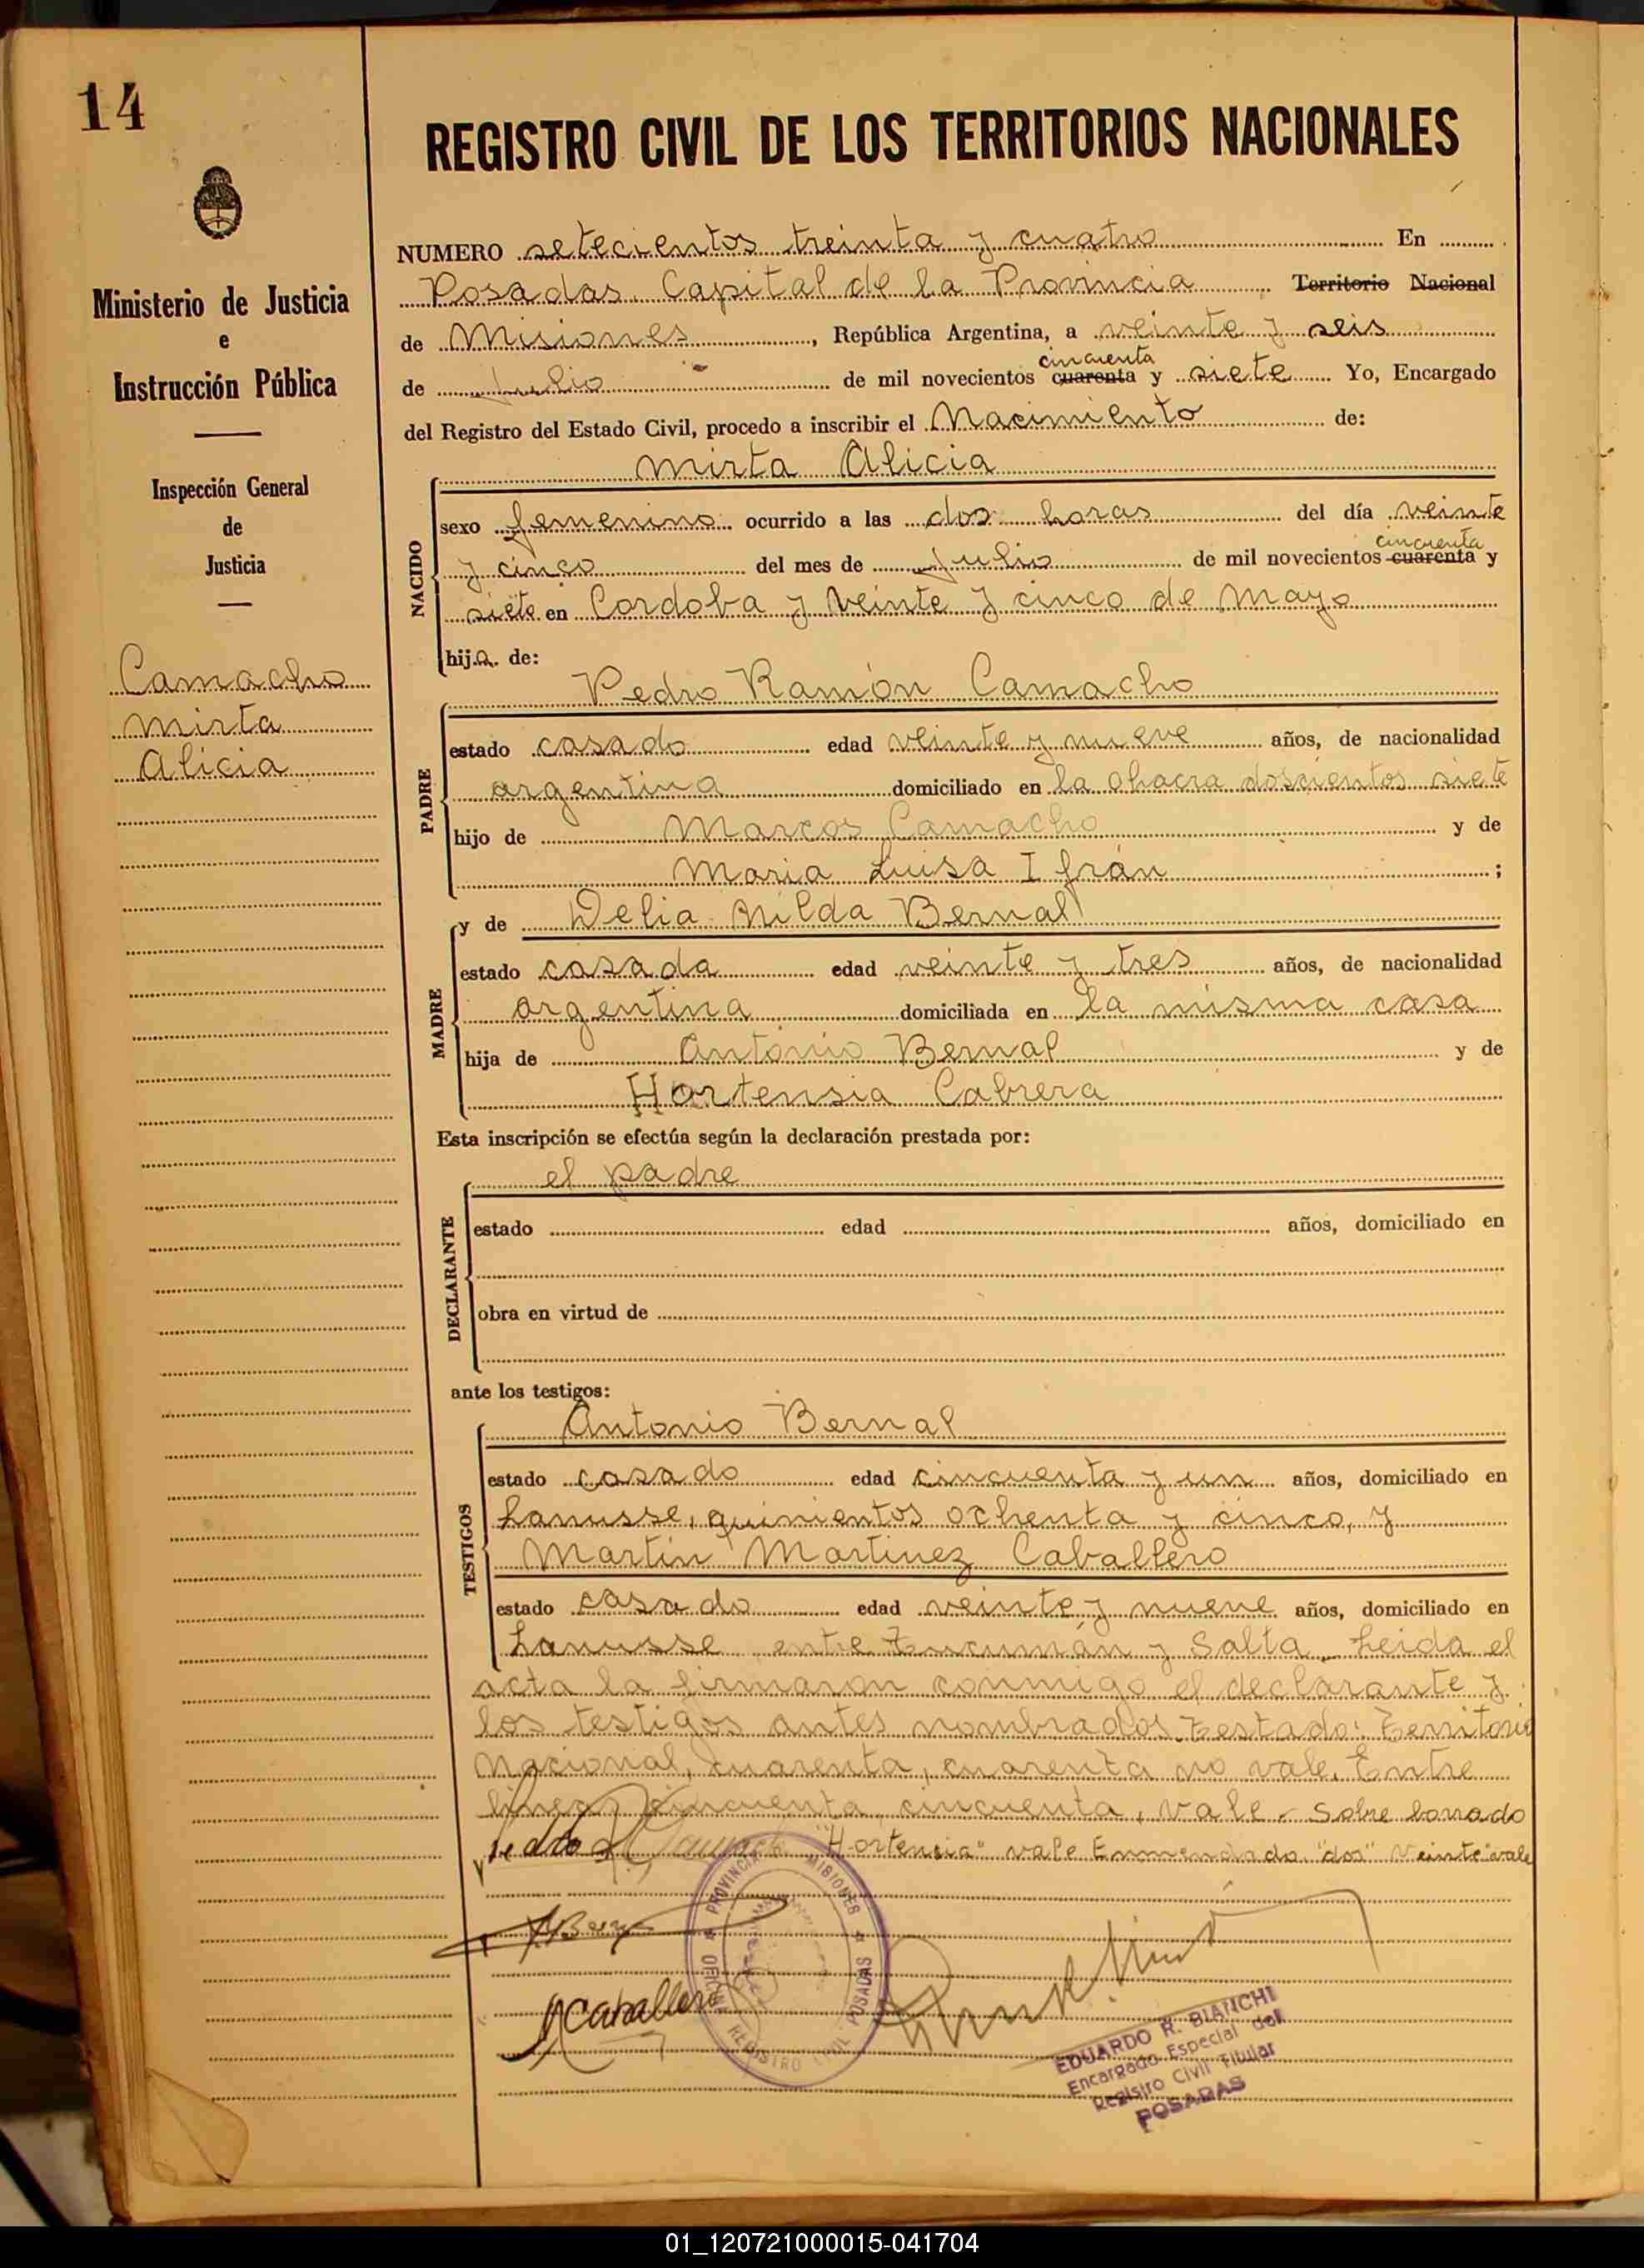 14
Ministerio de Justicia
e
Instrucción Pública
Inspección General
de
Justicia
Camacho
Mirta
Alicia
REGISTRO CIVIL DE LOS TERRITORIOS NACIONALES
NUMERO setecientos treinta y cuatro En
Posadas Capital de la Provincia Territorio Nacional
de Misiones, República Argentina, a veinte y seis
cincuenta
de Julio de mil novecientos cuarenta y siete Yo, Encargado
del Registro del Estado Civil, procedo a inscribir el Nacimiento de:
NACIDO
Mirta Alicia
sexo femenino ocurrido a las dos horas del día veinte
cincuenta
y cinco del mes de Julio de mil novecientos cuarenta y
siete en Cordoba y Veinte y cinco de Mayo
hija de:
PADRE
Pedro Ramón Camacho
estado casado edad veinte y nueve años, de nacionalidad
argentina domiciliado en la chacra doscientos siete
hijo de Marcos Camacho y de
Maria Luisa Ifrán ;
MADRE
y de Delia Nilda Bernal
estado casada edad veinte y tres años, de nacionalidad
argentina domiciliada en la misma casa
hija de Antonio Bernal y de
Hortensia Cabrera
Esta inscripción se efectúa según la declaración prestada por:
DECLARANTE
el padre
estado edad años, domiciliado en
obra en virtud de
ante los testigos:
TESTIGOS
Antonio Bernal
estado casado edad cincuenta y un años, domiciliado en
Lanusse, quinientos ochenta y cinco, y
Martin Martinez Caballero
estado casado edad veinte y nueve años, domiciliado en
Lanusse entre Tucumán y Salta. Leida el
acta la firmaron conmigo el declarante y
los testigos antes nombrados. Testado: Territorio
Nacional, cuarenta, cuarenta no vale. Entre
lineas cincuenta cincuenta, vale. Sobre borrado
"Hortencia" vale Enmendado "dos" Veinte" vale
Pedro R Camacho
M Caballero
PROVINCIA MISIONES
OFICINA REGISTRO CIVIL POSADAS
EDUARDO R. BIANCHI
Encargado Especial del
Registro Civil Titular
POSADAS
01_120721000015-041704